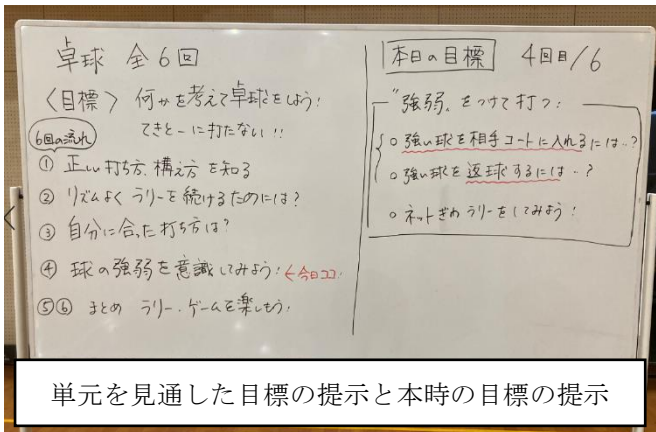 卓球 全6回
〈目標〉 何かを考えて卓球をしよう!
てきとーに打たない!!
6回の流れ
① 正しい打ち方、構え方を知る
② リズムよくラリーを続けるためには?
③ 自分に合った打ち方は?
④ 球の強弱を意識してみよう! ←今日ココ!
⑤⑥ まとめ ラリー・ゲームを楽しもう!
本日の目標 4回目/6
"強弱" をつけて打つ!
○ 強い球を相手コートに入れるには‥?
○ 強い球を返球するには‥?
○ ネットぎわラリーをしてみよう!
単元を見通した目標の提示と本時の目標の提示